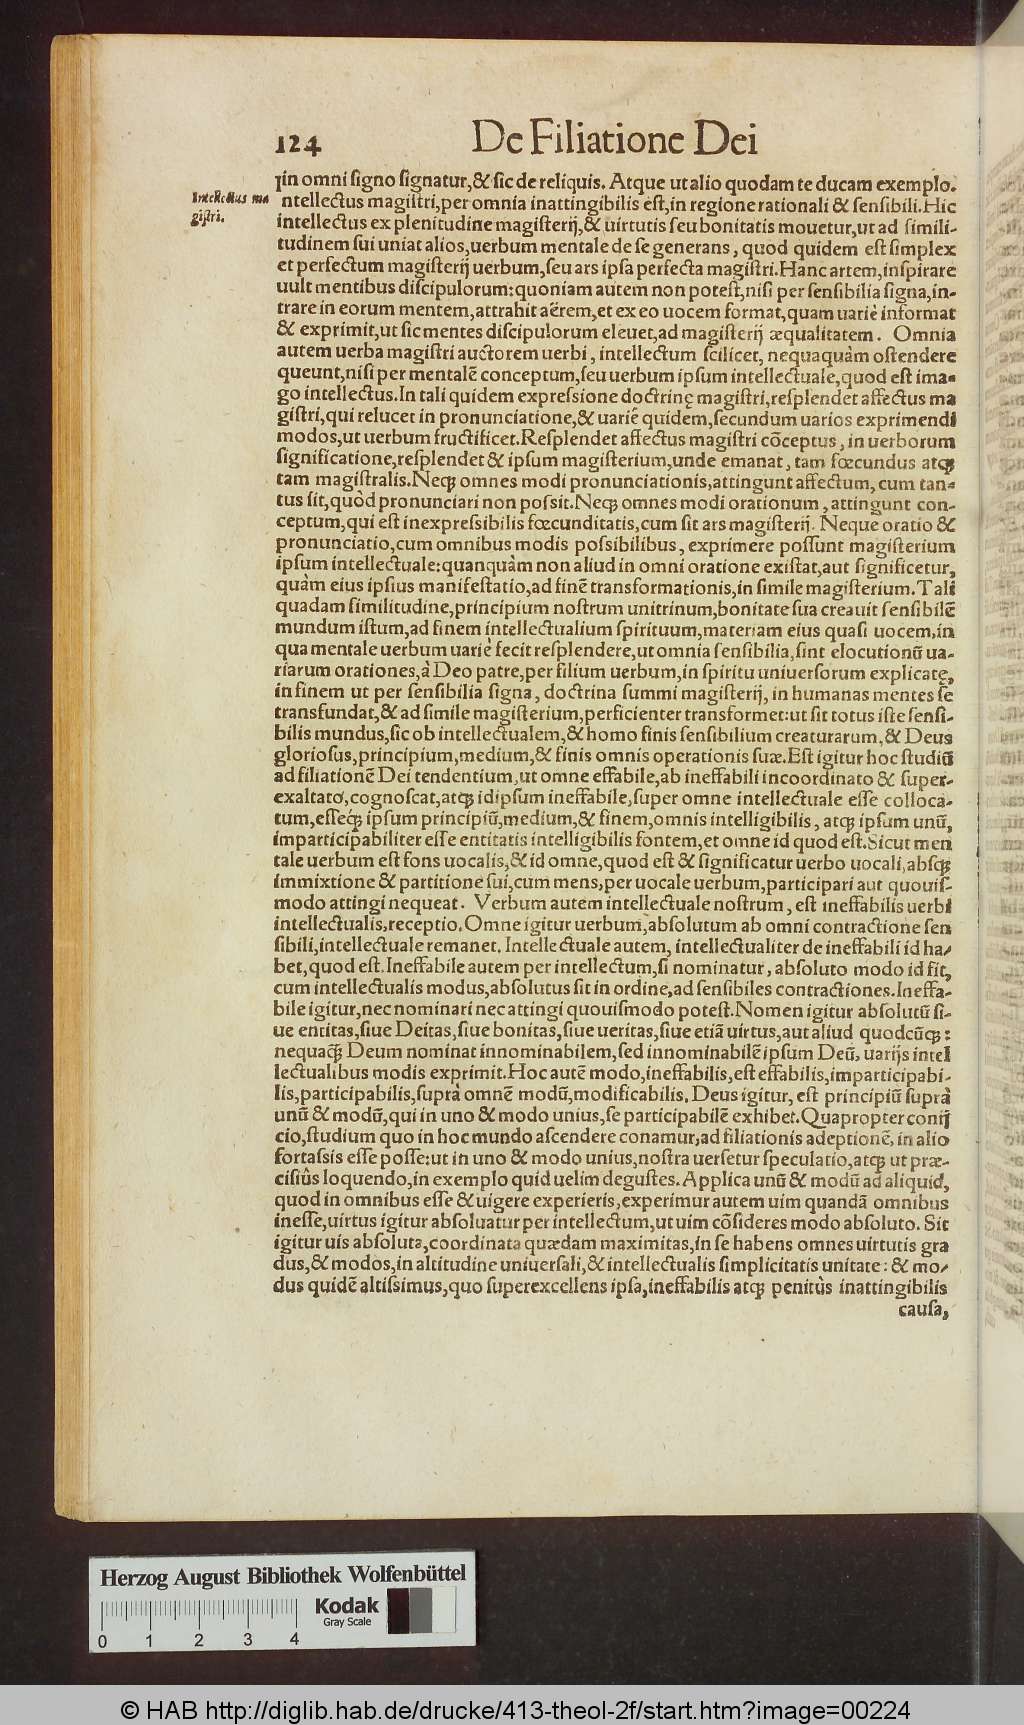 124 De Filiatione Dei
Intellectus ma
giſtri.
in omni ſigno ſignatur,& ſic de reliquis. Atque ut alio quodam te ducam exemplo.
ntellectus magiſtri,per omnia inattingibilis eſt,in regione rationali & ſenſibili.Hic
intellectus ex plenitudine magiſterij,& uirtutis ſeu bonitatis mouetur,ut ad ſimili-
tudinem ſui uniat alios,uerbum mentale de ſe generans, quod quidem eſt ſimplex
et perfectum magiſterij uerbum,ſeu ars ipſa perfecta magiſtri.Hanc artem,inſpirare
uult mentibus diſcipulorum:quoniam autem non poteſt,niſi per ſenſibilia ſigna,in-
trare in eorum mentem,attrahit aërem,et ex eo uocem format,quam uariè informat
& exprimit,ut ſic mentes diſcipulorum eleuet,ad magiſterij æqualitatem. Omnia
autem uerba magiſtri auctorem uerbi, intellectum ſcilicet, nequaquàm oſtendere
queunt,niſi per mentalẽ conceptum,ſeu uerbum ipſum intellectuale,quod eſt ima-
go intellectus.In tali quidem expreſsione doctrinę magiſtri,reſplendet affectus ma
giſtri,qui relucet in pronunciatione,& uariè quidem,ſecundum uarios exprimendi
modos,ut uerbum fructificet.Reſplendet affectus magiſtri cõceptus, in uerborum
ſignificatione,reſplendet & ipſum magiſterium,unde emanat, tam fœcundus atq́;
tam magiſtralis.Neq; omnes modi pronunciationis,attingunt affectum, cum tan-
tus ſit,quòd pronunciari non poſsit.Neq; omnes modi orationum, attingunt con-
ceptum,qui eſt inexpreſsibilis fœcunditatis,cum ſit ars magiſterij. Neque oratio &
pronunciatio,cum omnibus modis poſsibilibus, exprimere poſſunt magiſterium
ipſum intellectuale:quanquàm non aliud in omni oratione exiſtat,aut ſignificetur,
quàm eius ipſius manifeſtatio,ad finẽ transformationis,in ſimile magiſterium.Tali
quadam ſimilitudine,principium noſtrum unitrinum,bonitate ſua creauit ſenſibilẽ
mundum iſtum,ad finem intellectualium ſpirituum,materiam eius quaſi uocem,in
qua mentale uerbum uariè fecit reſplendere,ut omnia ſenſibilia,ſint elocutionũ ua-
riarum orationes,à Deo patre,per filium uerbum,in ſpiritu uniuerſorum explicatę,
in finem ut per ſenſibilia ſigna, doctrina ſummi magiſterij, in humanas mentes ſe
transfundat,& ad ſimile magiſterium,perficienter transformet:ut ſit totus iſte ſenſi-
bilis mundus,ſic ob intellectualem,& homo finis ſenſibilium creaturarum,& Deus
glorioſus,principium,medium,& finis omnis operationis ſuæ.Eſt igitur hoc ſtudiũ
ad filiationẽ Dei tendentium,ut omne effabile,ab ineffabili incoordinato & ſuper-
exaltato,cognoſcat,atq; id ipſum ineffabile,ſuper omne intellectuale eſſe colloca-
tum,eſſeq́; ipſum principiũ,medium,& finem,omnis intelligibilis, atq; ipſum unũ,
imparticipabiliter eſſe entitatis intelligibilis fontem,et omne id quod eſt.Sicut men
tale uerbum eſt fons uocalis,& id omne,quod eſt & ſignificatur uerbo uocali,abſq;
immixtione & partitione ſui,cum mens,per uocale uerbum,participari aut quouiſ-
modo attingi nequeat. Verbum autem intellectuale noſtrum, eſt ineffabilis uerbi
intellectualis,receptio.Omne igitur uerbum,abſolutum ab omni contractione ſen
ſibili,intellectuale remanet.Intellectuale autem, intellectualiter de ineffabili id ha-
bet,quod eſt.Ineffabile autem per intellectum,ſi nominatur, abſoluto modo id fit,
cum intellectualis modus,abſolutus ſit in ordine,ad ſenſibiles contractiones.Ineffa-
bile igitur,nec nominari nec attingi quouiſmodo poteſt.Nomen igitur abſolutũ ſi-
ue entitas,ſiue Deitas,ſiue bonitas,ſiue ueritas,ſiue etiã uirtus,aut aliud quodcũq;:
nequaq̃ Deum nominat innominabilem,ſed innominabilẽ ipſum Deũ, uarijs intel
lectualibus modis exprimit.Hoc autẽ modo,ineffabilis,eſt effabilis,imparticipabi-
lis,participabilis,ſuprà omnẽ modũ,modificabilis.Deus igitur, eſt principiũ ſuprà
unũ & modũ,qui in uno & modo unius,ſe participabilẽ exhibet.Quapropter conij
cio,ſtudium quo in hoc mundo aſcendere conamur,ad filiationis adeptionẽ, in alio
fortaſsis eſſe poſſe:ut in uno & modo unius,noſtra uerſetur ſpeculatio,atq; ut præ-
ciſiùs loquendo,in exemplo quid uelim deguſtes.Applica unũ & modũ ad aliquid,
quod in omnibus eſſe & uigere experieris,experimur autem uim quandã omnibus
ineſſe,uirtus igitur abſoluatur per intellectum,ut uim cõſideres modo abſoluto. Sit
igitur uis abſoluta,coordinata quædam maximitas,in ſe habens omnes uirtutis gra
dus,& modos,in altitudine uniuerſali,& intellectualis ſimplicitatis unitate: & mo-
dus quidẽ altiſsimus,quo ſuperexcellens ipſa,ineffabilis atq; penitùs inattingibilis
cauſa,
Herzog August Bibliothek Wolfenbüttel
Kodak
Gray Scale
0 1 2 3 4
© HAB http://diglib.hab.de/drucke/413-theol-2f/start.htm?image=00224